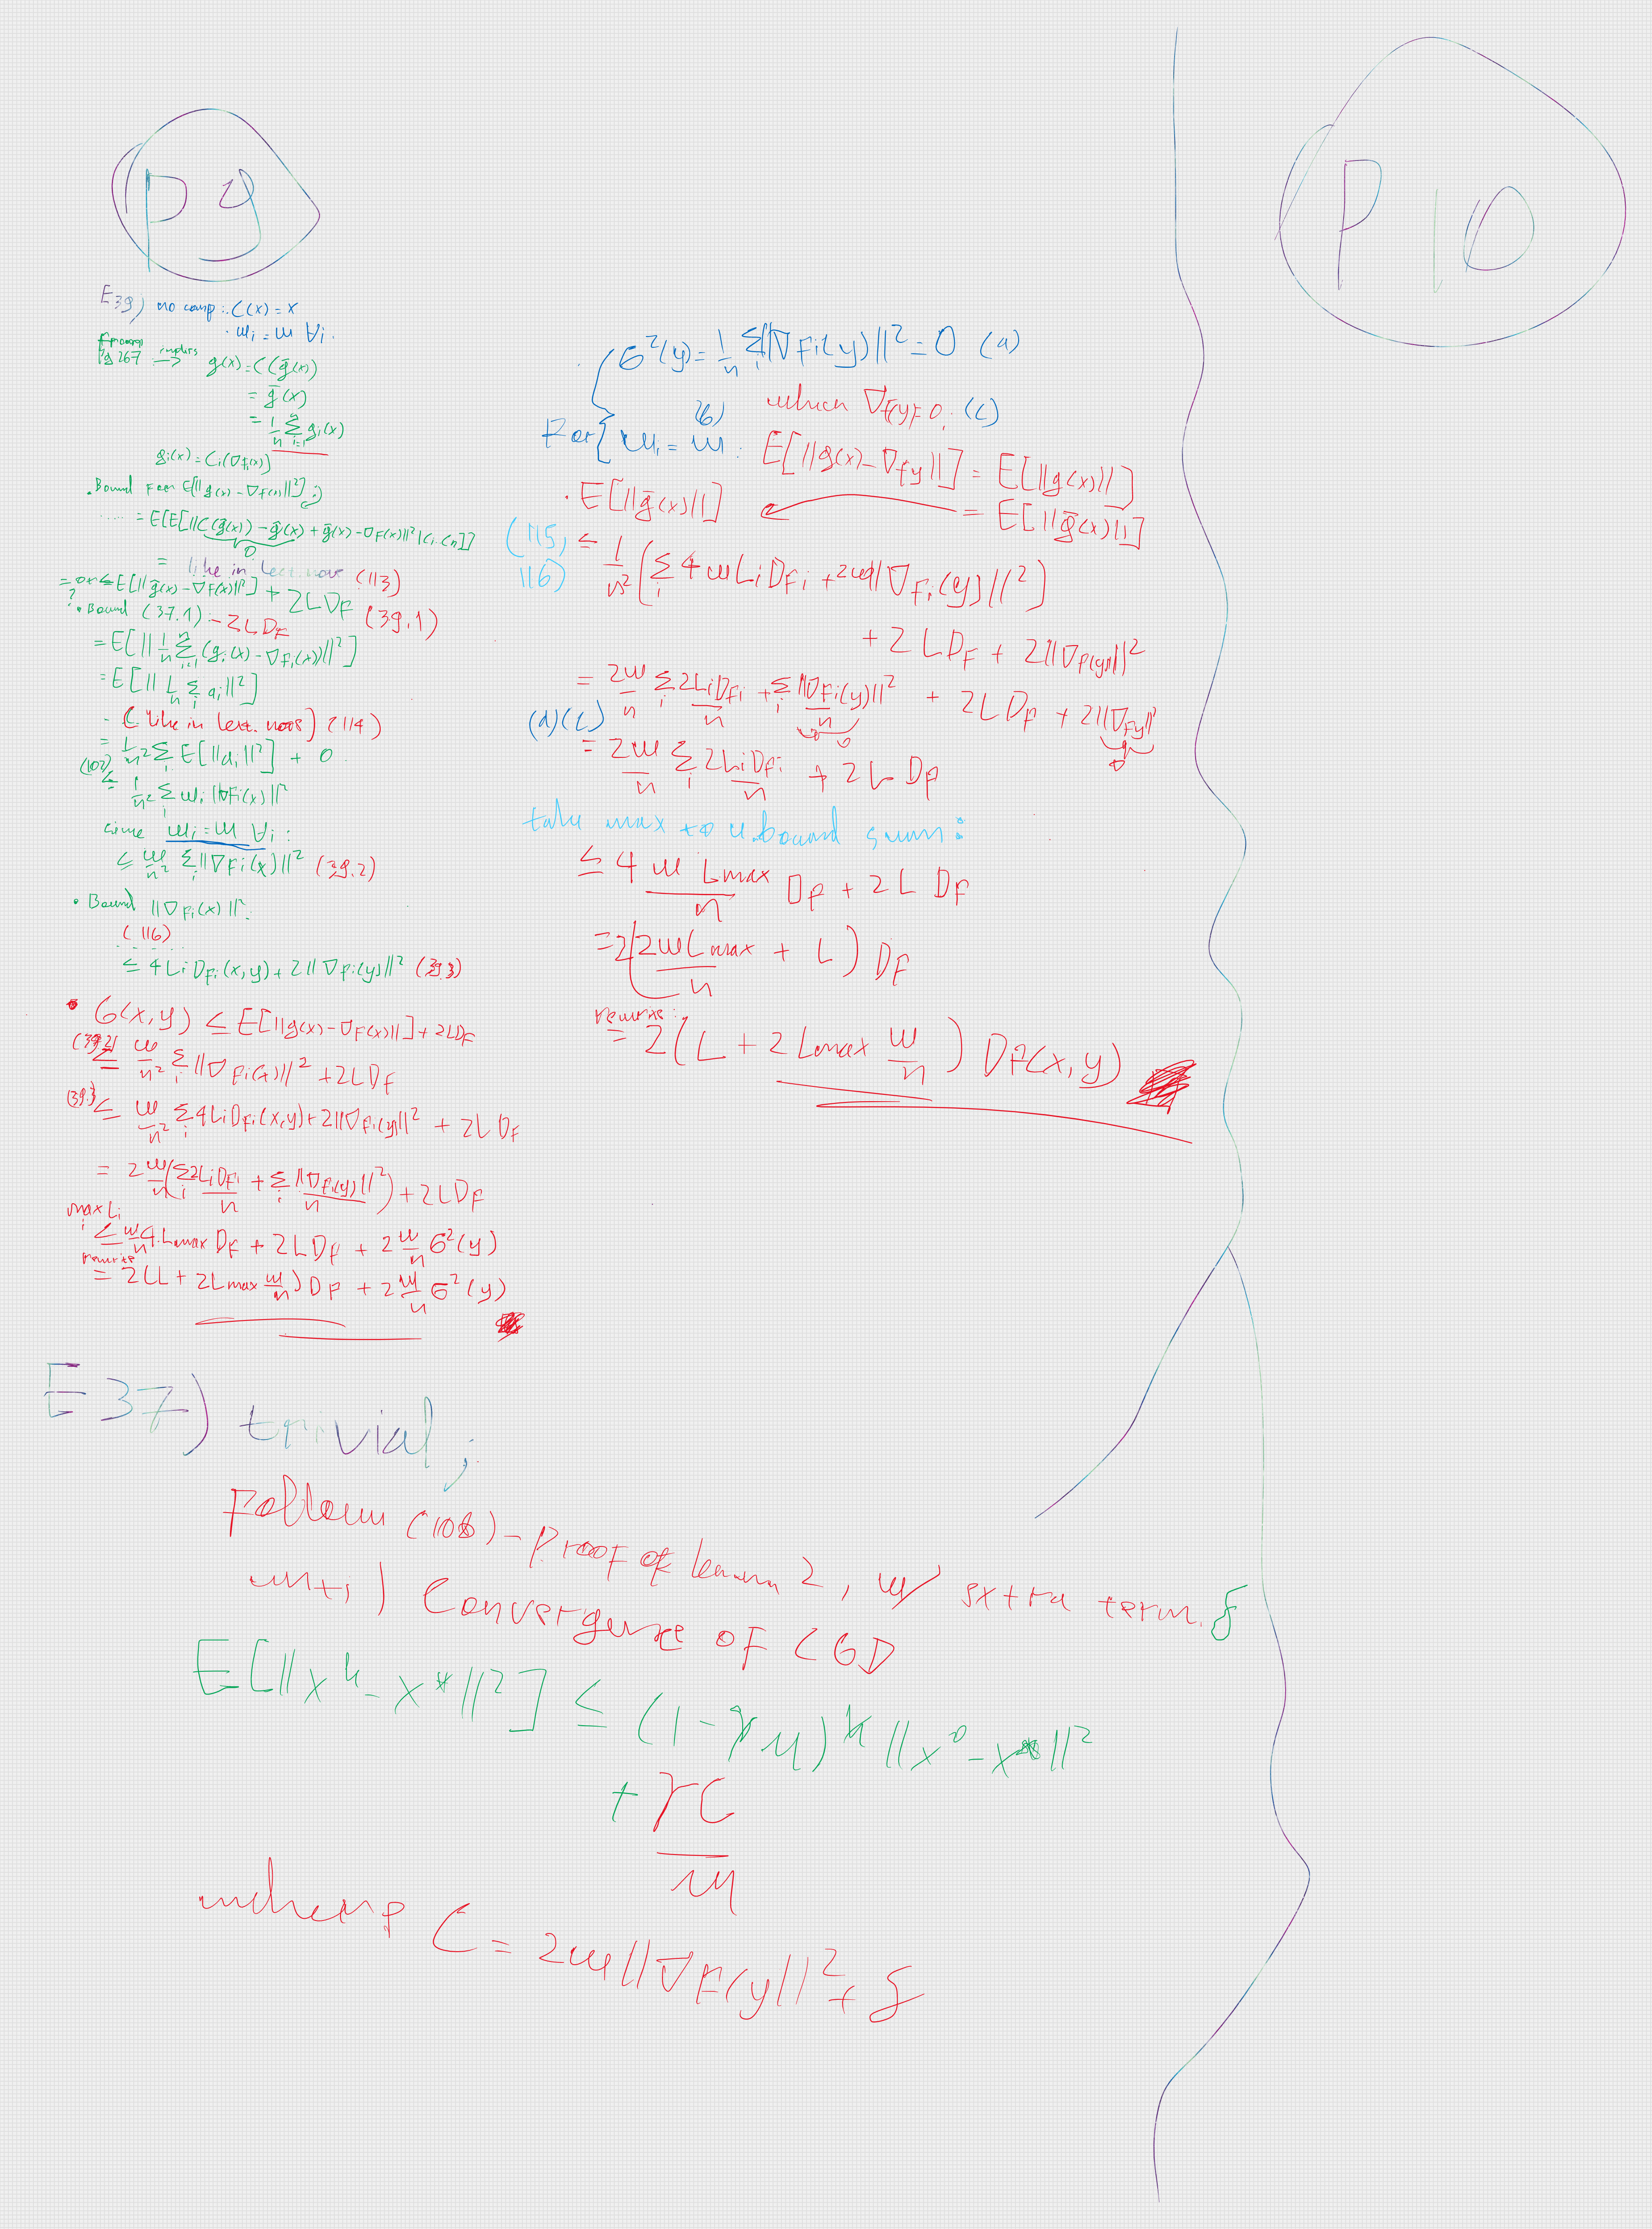 P 9
E39) no comp: C(x) = x
· ω_i = ω ∀i.
Pg 267 → g(x) = C(ḡ(x))
= ḡ(x)
= 1/n Σ_{i=1}^n g_i(x)
g_i(x) = C_i(∇f_i(x))
· Bound for E[||g(x) - ∇F(x)||²]:
..... = E[E[||C(ḡ(x)) - ḡ(x) + ḡ(x) - ∇F(x)||² | C_1..C_n]]
0
= like in lect. nots (113)
= or ≤ E[||ḡ(x) - ∇F(x)||²] + 2LD_F (39.1)
?
· Bound (37.1) - 2LD_F
= E[||1/n Σ_{i=1}^n (g_i(x) - ∇F_i(x))||²]
= E[||1/n Σ_i a_i||²]
- (like in lect. nots) (114)
= 1/n² Σ_i E[||a_i||²] + 0
(102) ≤ 1/n² Σ_i ω_i ||∇F_i(x)||²
since ω_i = ω ∀i:
≤ ω/n² Σ_i ||∇F_i(x)||² (39.2)
· Bound ||∇F_i(x)||².
(116)
≤ 4L_i D_{F_i}(x,y) + 2||∇F_i(y)||² (39.3)
• G(x,y) ≤ E[||g(x) - ∇F(x)||] + 2LD_F
(39.2) ≤ ω/n² Σ_i ||∇F_i(x)||² + 2LD_F
(39.3) ≤ ω/n² Σ_i 4L_i D_{F_i}(x,y) + 2||∇F_i(y)||² + 2LD_F
= 2 ω/n (Σ_i 2L_i D_{F_i}/n + Σ_i ||∇F_i(y)||²/n) + 2LD_F
max_i L_i ≤ ω/n 4·L_max D_F + 2LD_F + 2 ω/n σ²(y)
rewrite = 2(L + 2L_max ω/n) D_F + 2 ω/n σ²(y)
For { σ²(y) = 1/n Σ_i ||∇F_i(y)||² = 0 (a)
(b) when ∇f(y) = 0. (c)
ω_i = ω : E[||g(x) - ∇f y||] = E[||g(x)||]
= E[||ḡ(x)||]
· E[||ḡ(x)||]
(115, 116) ≤ 1/n² (Σ_i 4ωL_i D_{F_i} + 2ω||∇F_i(y)||²)
+ 2LD_F + 2||∇F(y)||²
= 2ω/n Σ_i 2L_i D_{F_i}/n + Σ_i ||∇F_i(y)||²/n + 2LD_F + 2||∇F y||²
0 0
(a)(c)
= 2ω/n Σ_i 2L_i D_{F_i}/n + 2L D_F
take max to u.bound sum:
≤ 4 ω L_max/n D_F + 2L D_F
= 2(2ωL_max/n + L) D_F
rewrite:
= 2(L + 2L_max ω/n) D_F(x,y)
P 10
E37) trivial;
Follow (108) - Proof of lemma 2, w/ extra term δ
Convergence of CGD
E[||x^k - x*||²] ≤ (1 - γμ)^k ||x⁰ - x*||²
+ γC/μ
where C = 2ω||∇F(y)||² + δ